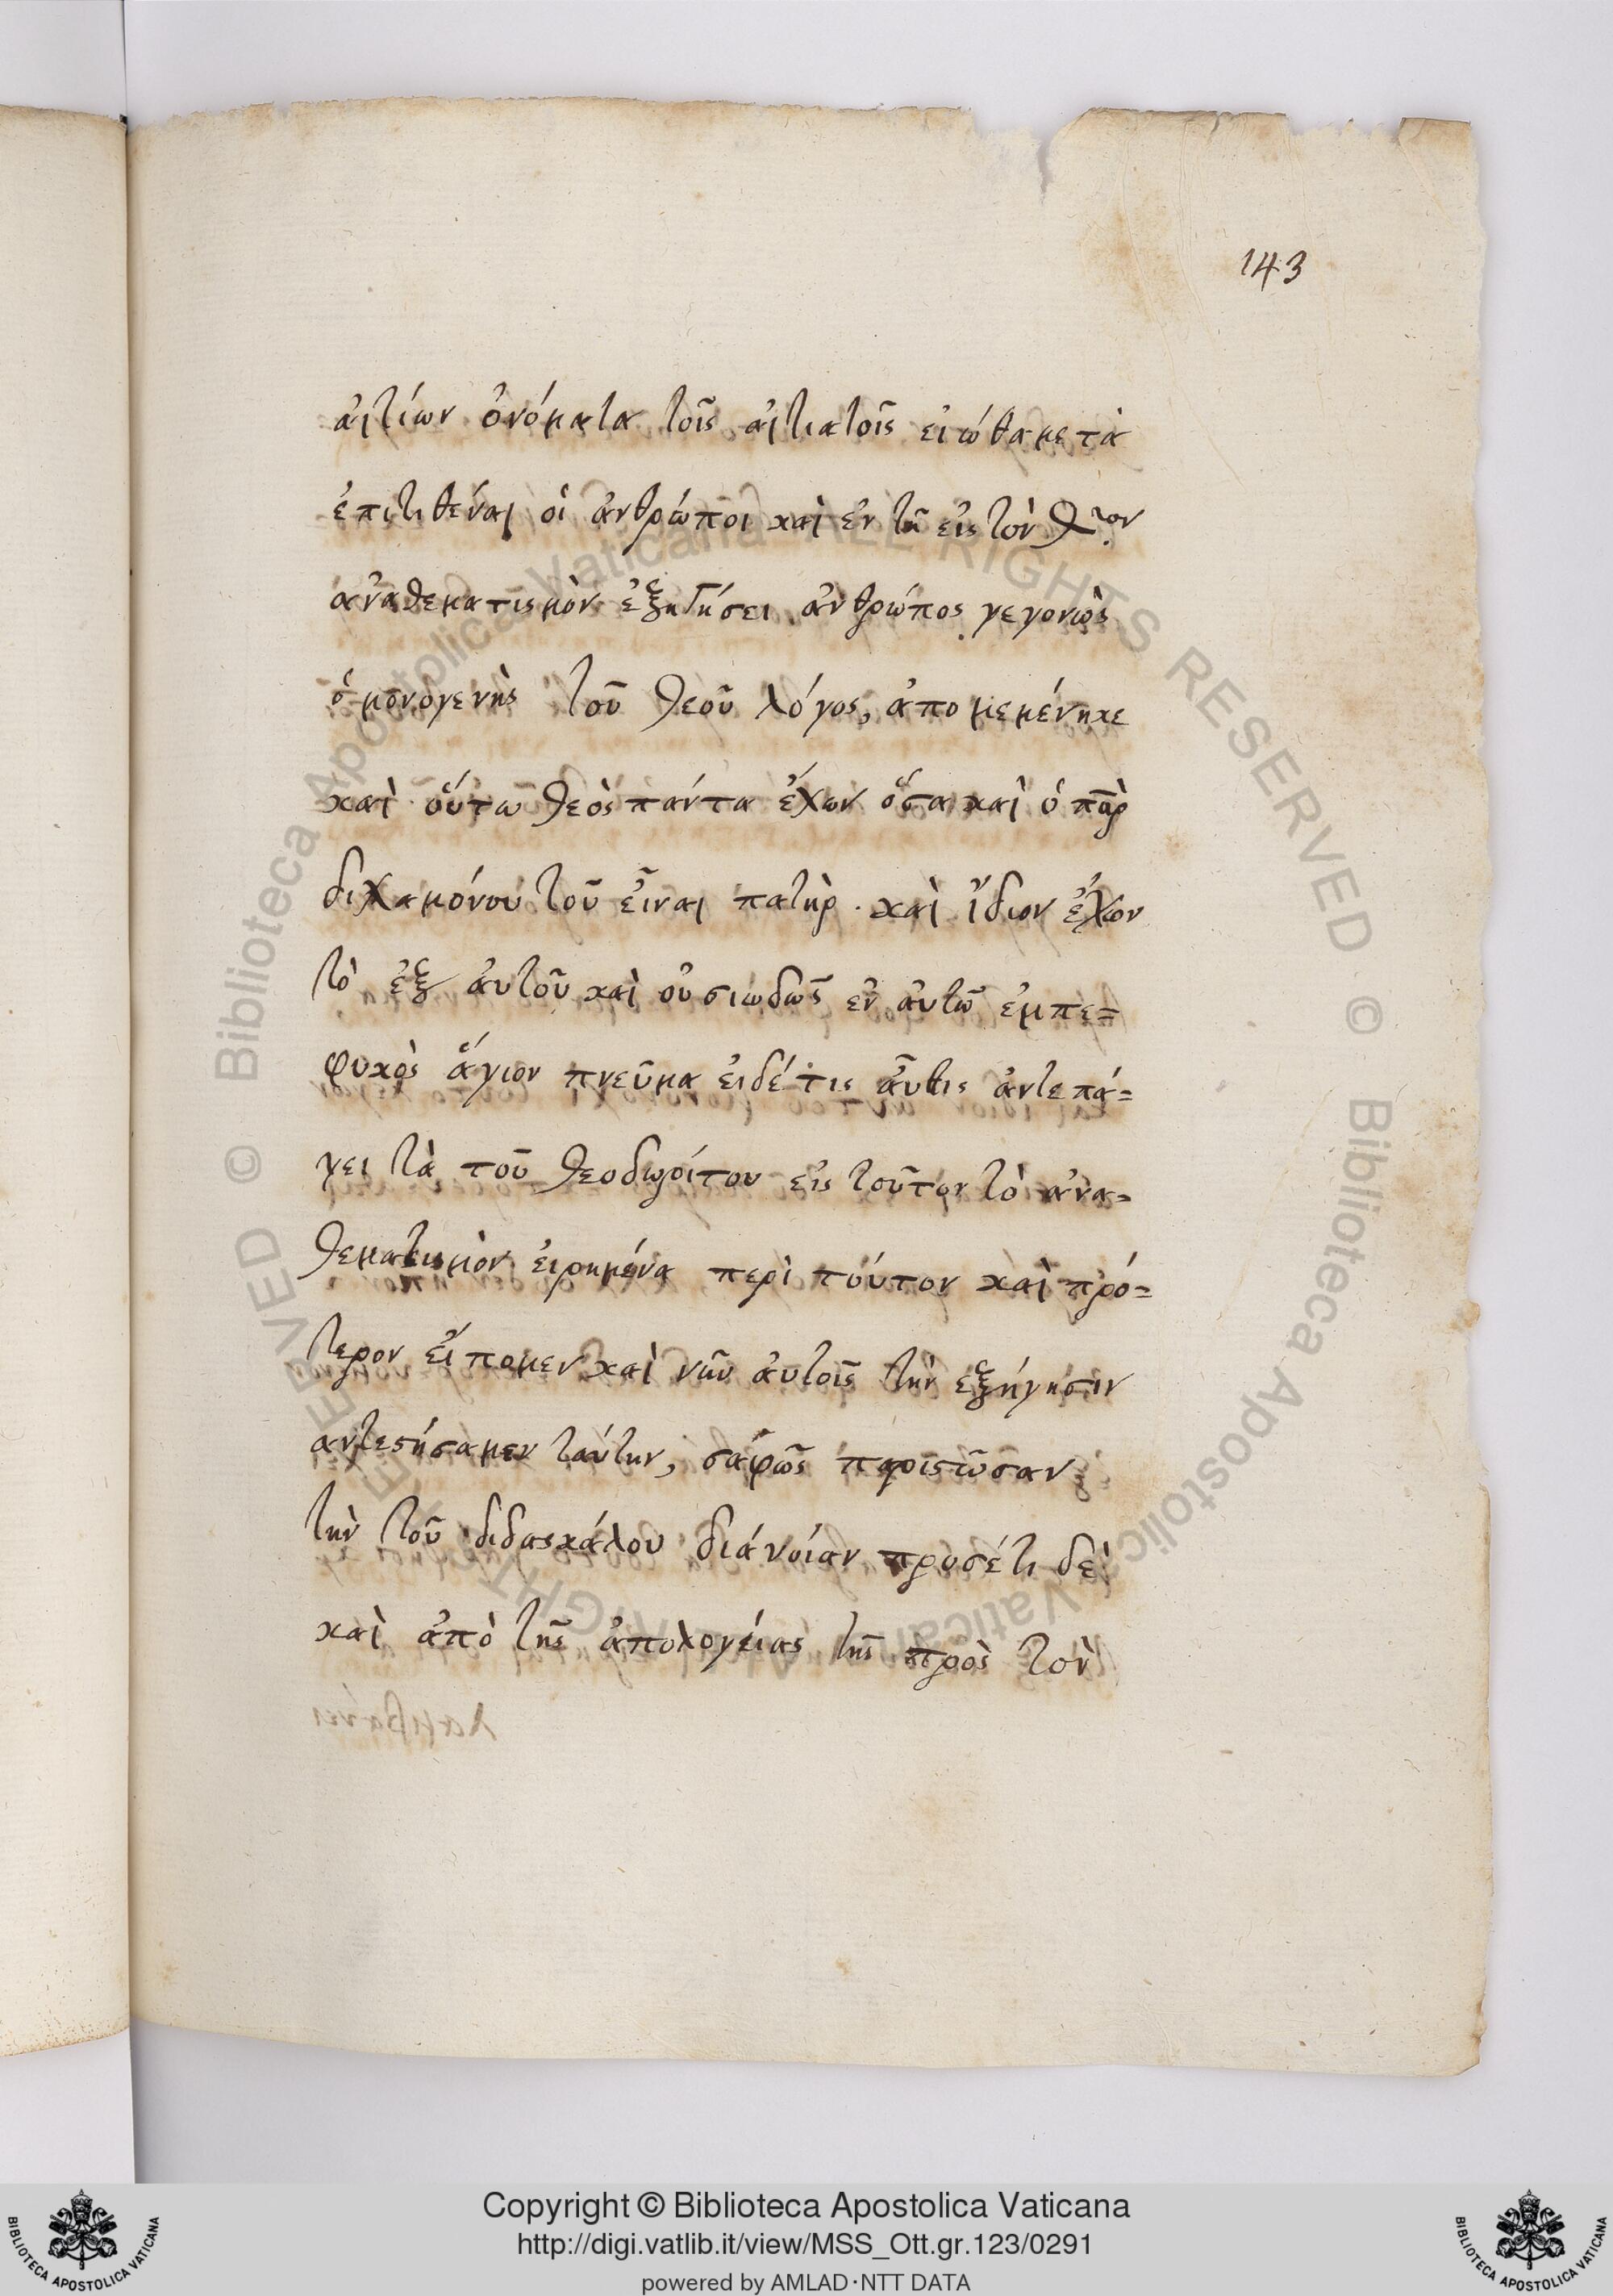 143
ἀιτίων ὀνόματα τοῖς ἀιτιατοῖς εἰώθαμετὰ
ἐπιτιθέναι οἱ ἀνθρώποι καὶ ἐν τῆ εἰς τὸν
ἀναθεματισμὸν ἐξηγήσει ἀνθρώπος γεγονὼς
ὁ μονογενὴς τοῦ θεοῦ λόγος, ἀπομεμένηκε
καὶ οὕτω θεὸς πάντα ἔχων ὅσα καὶ ὁ πὴρ
διχαμόνου τοῦ εἶναι πατὴρ · καὶ ἴδιον ἔχων
τὸ ἐξ ἀυτοῦ καὶ οὐσιωδῶς ἐν ἀυτῶ ἐμπε=
φυκὸς ἅγιον πνεῦμα ἐιδέτις ἀῦθις ἀντεπά=
γει τὰ τοῦ θεοδωρίτου εἰς τοῦτον τὸ ἀνα=
θεματισμὸν ἐιρημένα περὶ τούτον καὶ πρό=
τερον ἐίπομεν καὶ νῦν ἀυτοῖς τὴν ἐξήγησιν
αντεστήσαμεν ταύτην, σαφῶς παριστῶσαν
τὴν τοῦ διδασκάλου διάνοίαν προσέτι δὲ
καὶ ἀπὸ τῆς ἀπολογείας τῆς πρὸς τὸν
Copyright © Biblioteca Apostolica Vaticana
http://digi.vatlib.it/view/MSS_Ott.gr.123/0291
powered by AMLAD·NTT DATA